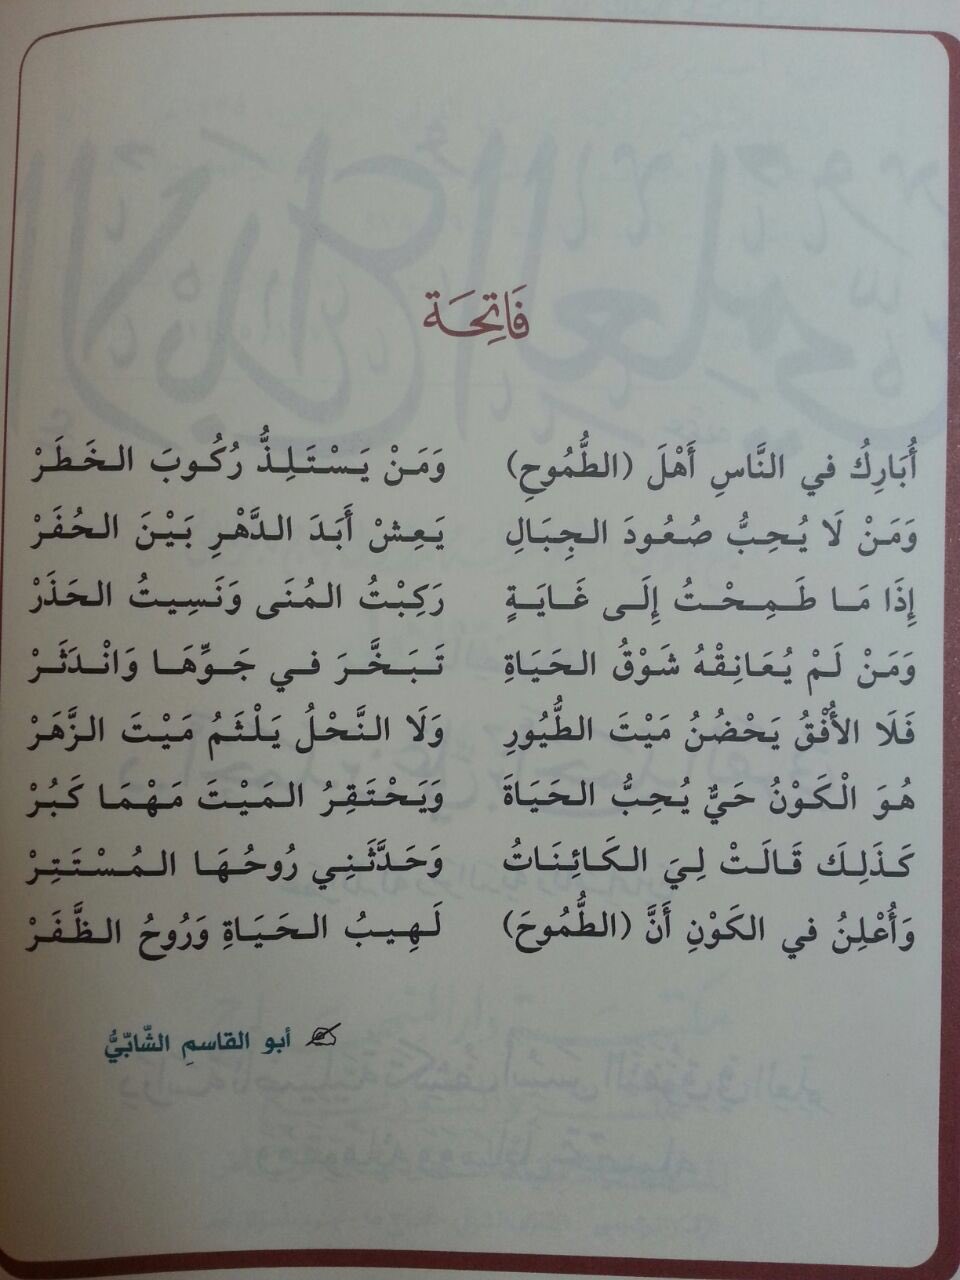 فَاتِحَة
أُبَارِكُ في النَّاسِ أَهْلَ (الطُّمُوحِ) وَمَنْ يَسْتَلِذُّ رُكُوبَ الخَطَرْ
وَمَنْ لَا يُحِبُّ صُعُودَ الجِبَالِ يَعِشْ أَبَدَ الدَّهْرِ بَيْنَ الحُفَرْ
إِذَا مَا طَمِحْتُ إِلَى غَايَةٍ رَكِبْتُ المُنَى وَنَسِيتُ الحَذَرْ
وَمَنْ لَمْ يُعَانِقْهُ شَوْقُ الحَيَاةِ تَبَخَّرَ في جَوِّهَا وَانْدَثَرْ
فَلَا الأُفْقُ يَحْضُنُ مَيْتَ الطُّيُورِ وَلَا النَّحْلُ يَلْثَمُ مَيْتَ الزَّهَرْ
هُوَ الْكَوْنُ حَيٌّ يُحِبُّ الحَيَاةَ وَيَحْتَقِرُ المَيْتَ مَهْمَا كَبُرْ
كَذَلِكَ قَالَتْ لِيَ الكَائِنَاتُ وَحَدَّثَنِي رُوحُهَا المُسْتَتِرْ
وَأُعْلِنُ في الكَوْنِ أَنَّ (الطُّمُوحَ) لَهِيبُ الحَيَاةِ وَرُوحُ الظَّفَرْ
أبو القاسمِ الشّابّيُّ